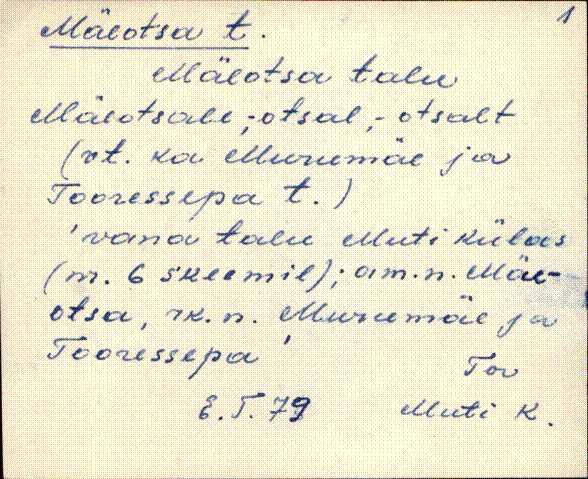 1
Mäeotsa t.
Mäeotsa talu
Mäeotsale, -otsal, -otsalt
(vt. ka Murumäe ja
Tooressepa t.)
'vana talu Muti külas
(m. 6 skeemil); am.n. Mäe-
otsa, rk. n. Murumäe ja
Tooressepa'
Tor
E.T. 79 Muti K.